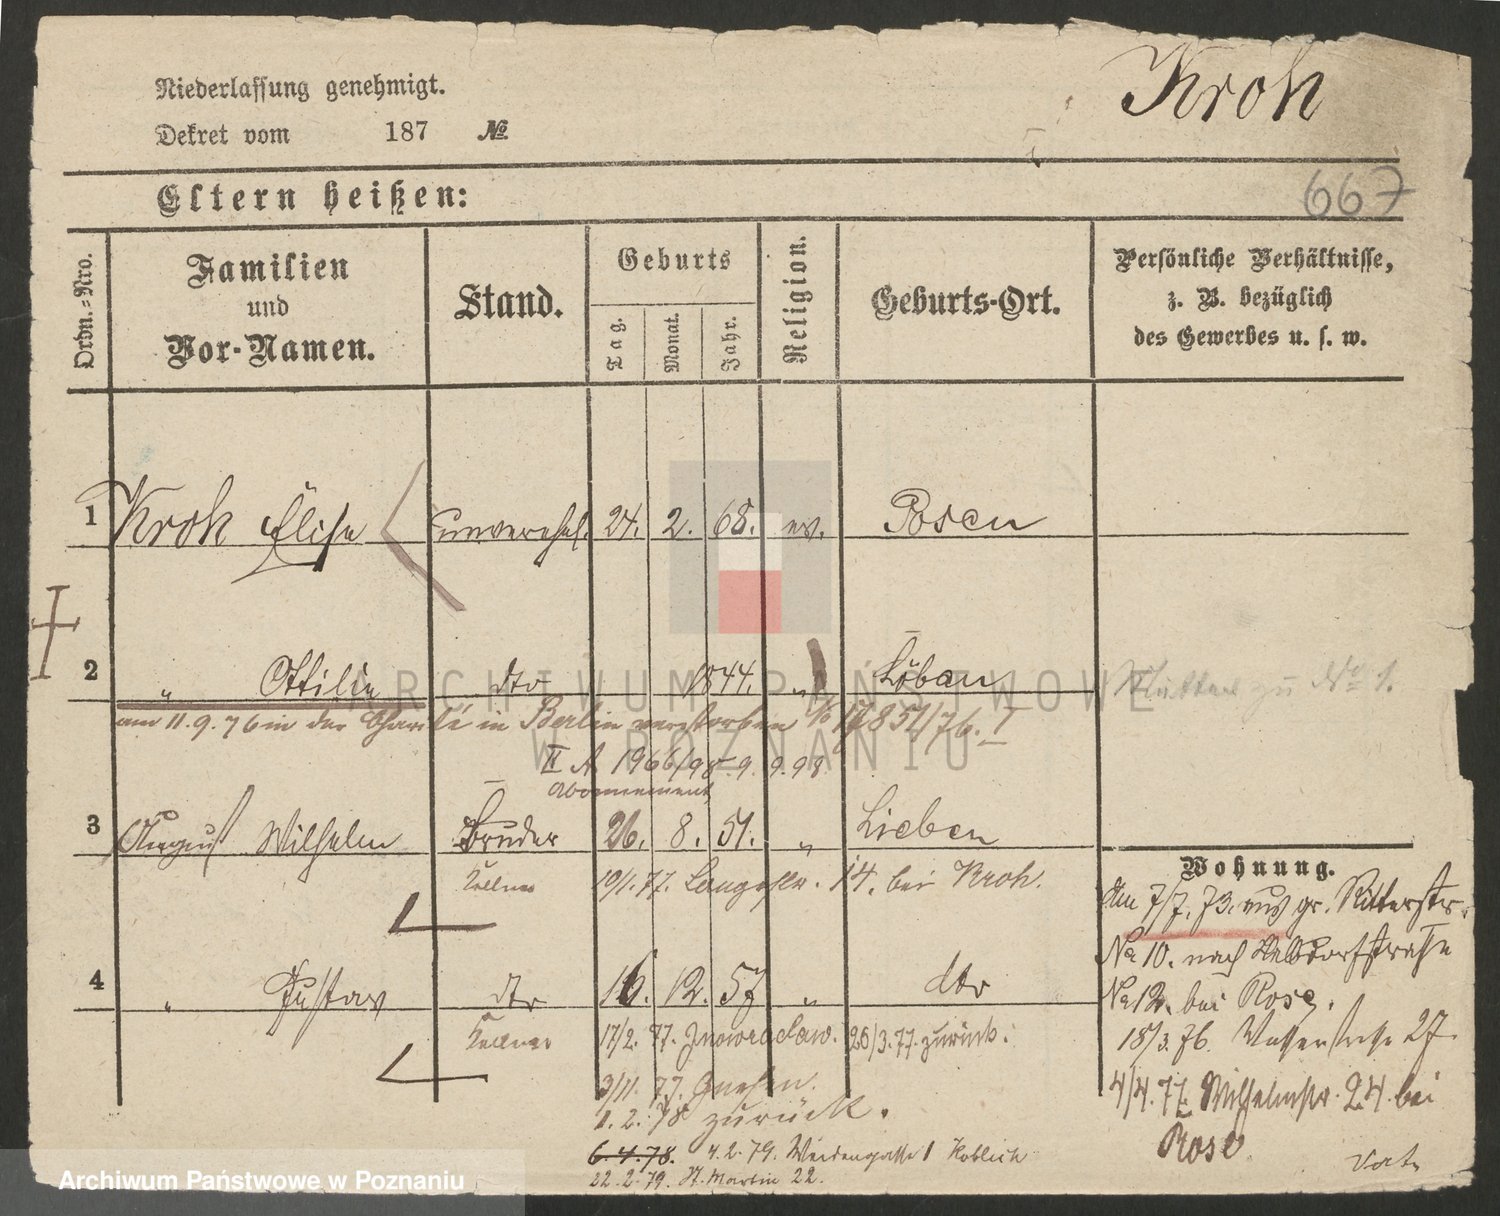 Niederlassung genehmigt.
Kroh
Dekret vom 187 №
Eltern heißen:
667
Ordn.=Nro.
Familien
und
Vor-Namen.
Stand.
Geburts
Tag.
Monat.
Jahr.
Religion.
Geburts-Ort.
Persönliche Verhältnisse,
z. B. bezüglich
des Gewerbes u. s. w.
1 Kroh Elise unverehel. 24. 2. 68. ev. Posen
2 " Ottilie dto 1844. " Löban Mutter zu No 1.
am 11.9.76 in der Charité in Berlin verstorben 851/76. I
II A 1966/98 9.9.98
Abonnement
3 August Wilhelm Bruder 26. 8. 51. " Lieben
Kellner 19/1.77. Langestr. 14. bei Kroh.
4 " Gustav dto 16. 12. 57 " dto
Kellner 17/2.77. Inowraclaw. 26/3.77. zurück.
3/11.77. Gnesen.
1.2.78 zurück.
6.4.78. 4.2.79. Weidengasse 1 Koblich
22.2.79. St. Martin 22.
Wohnung.
Am 7/7.73. aus gr. Ritterstr.
No 10. nach
No 12. bei Rose.
18/3.76. Wasserstrasse 27
4/4.77. Wilhelmstr. 24. bei
Rose
ARCHIWUM PAŃSTWOWE
W POZNANIU
Archiwum Państwowe w Poznaniu